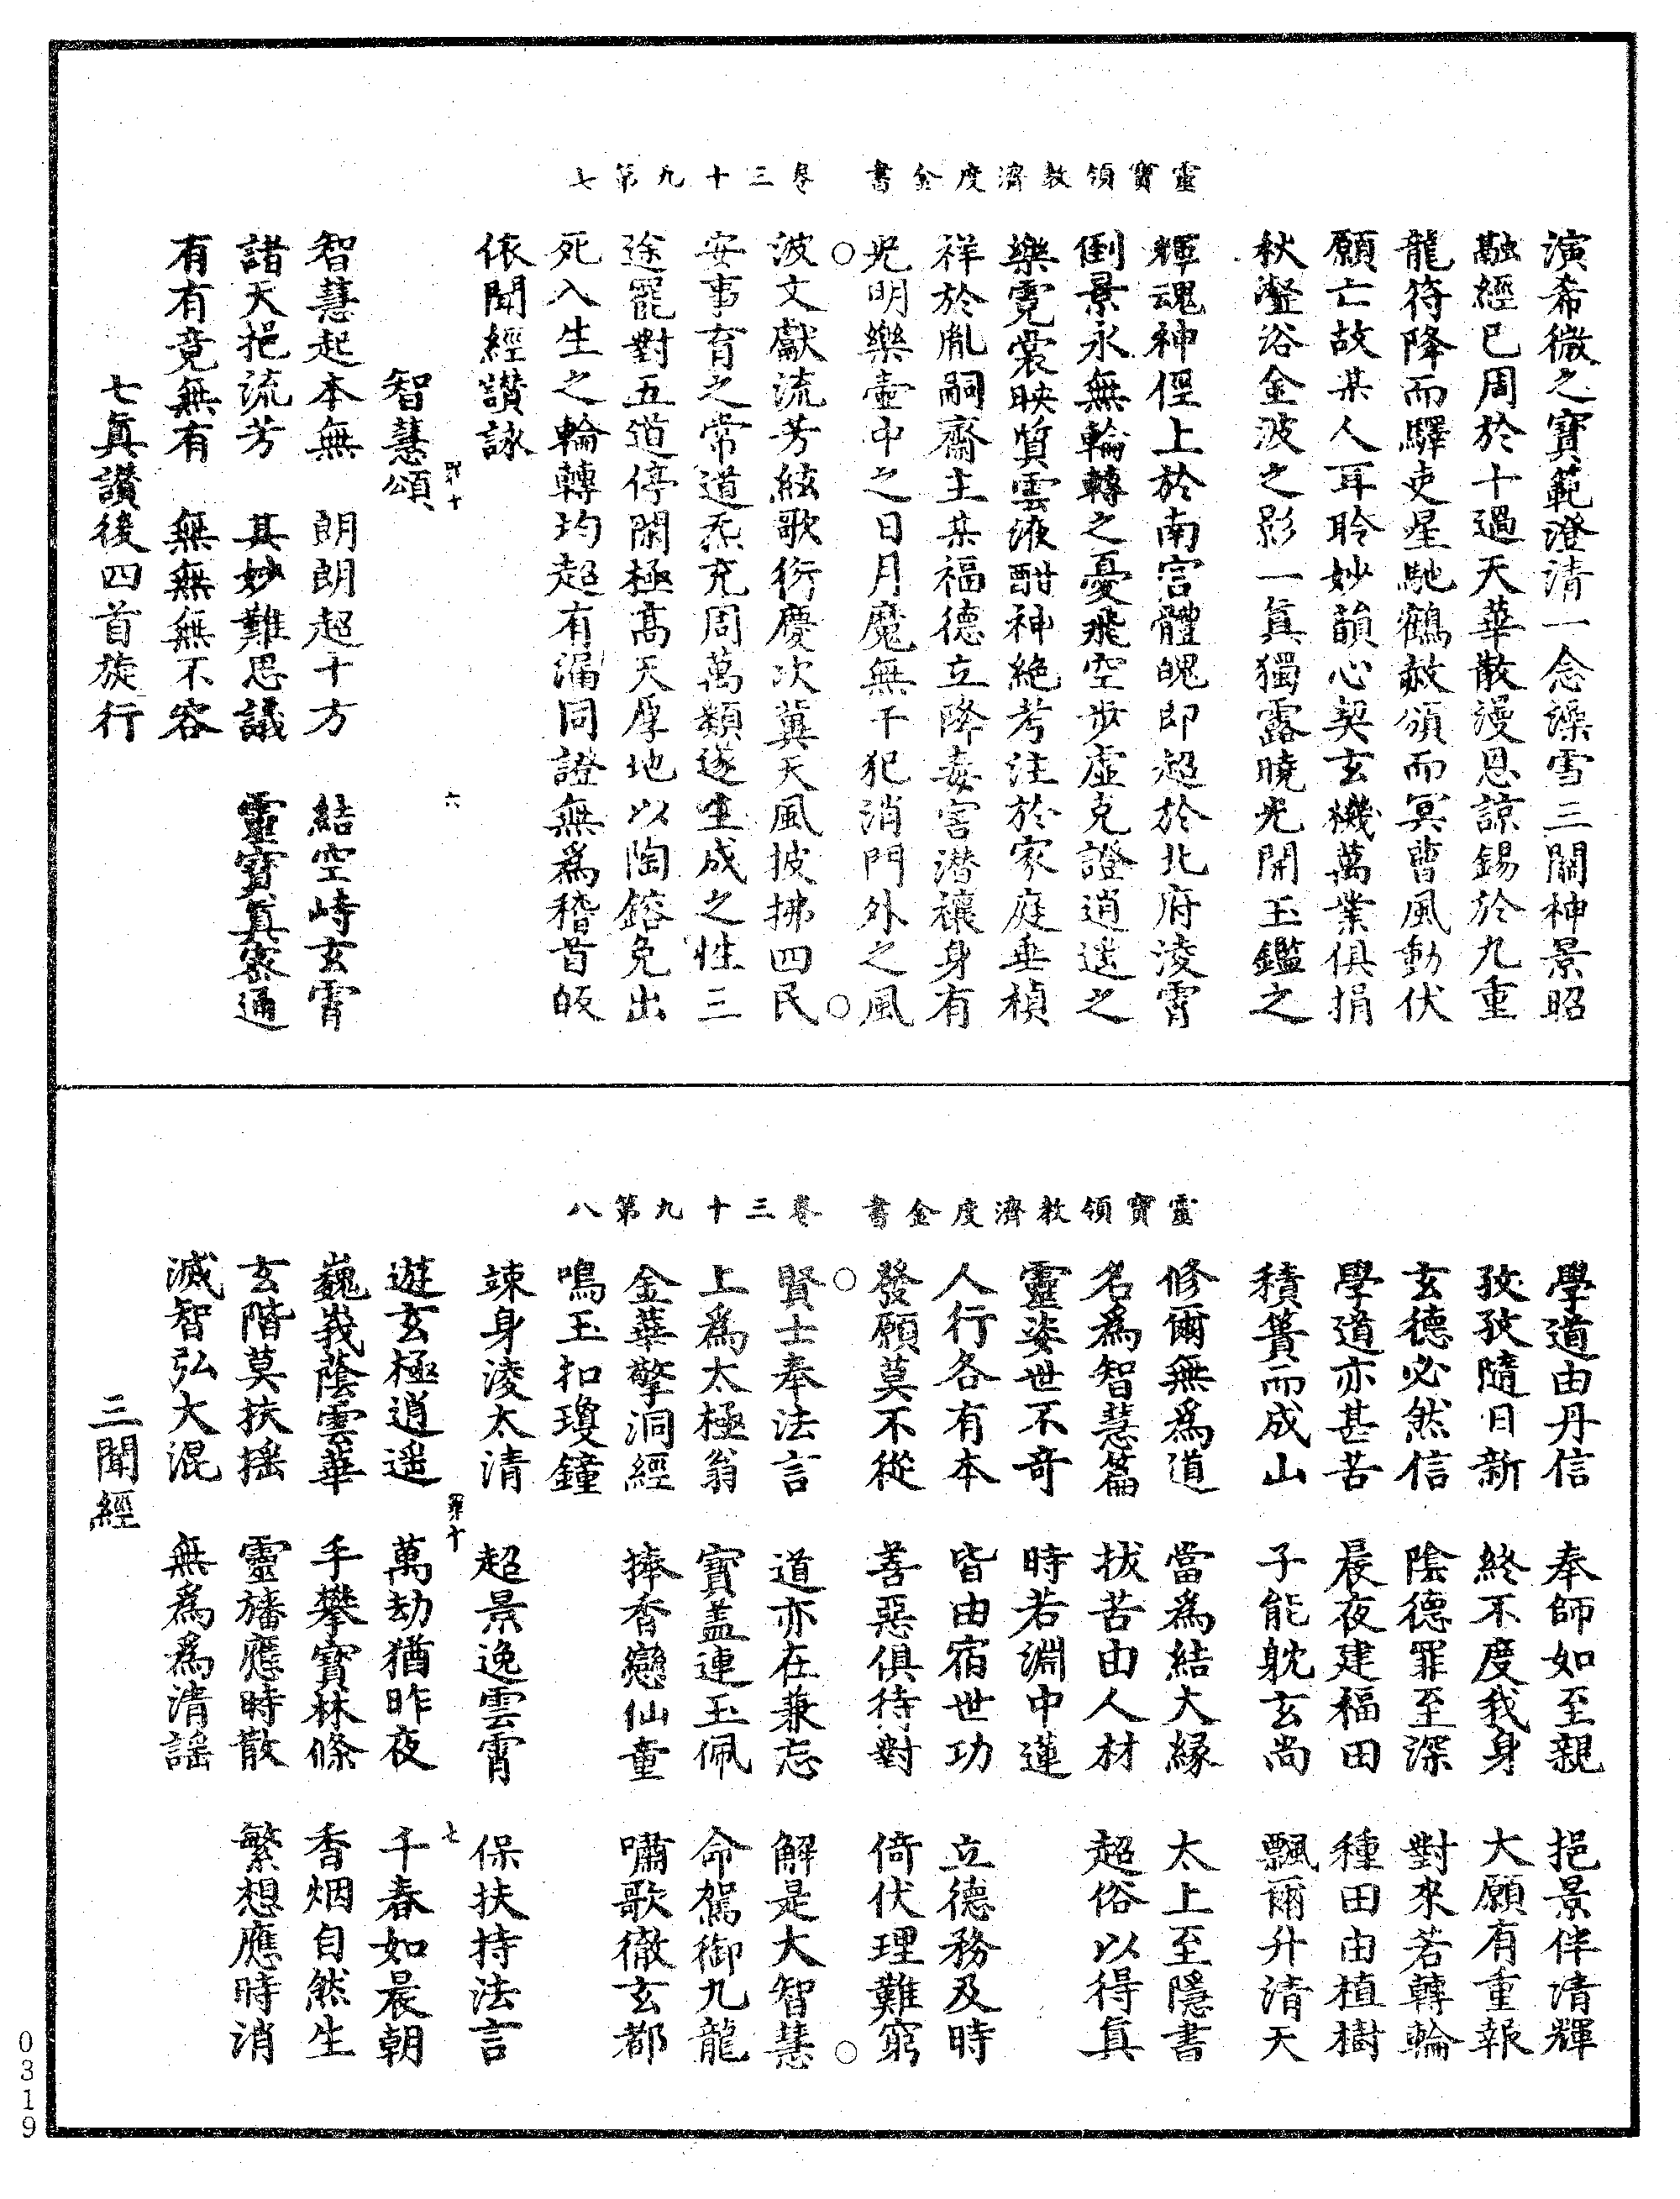 靈寶領教濟度金書　卷三十九第七
演希微之寶範澄清一念澡雪三關神景昭
融經已周於十過天華散漫恩諒錫於九重
龍符降而驛吏星馳鶴赦頒而冥曹風動伏
願亡故某人耳聆妙韻心契玄機萬業俱捐
秋瀅浴金波之影一真獨露曉光開玉鑑之
輝魂神俓上於南宫體魄即超於北府淩霄
倒景永無輪轉之憂飛空步虛克證逍遥之
樂霓裳映質雲液酣神絶考注於家庭垂楨
祥於胤嗣齋主某福德立降毒害潜禳身有
光明樂壺中之日月魔無干犯消門外之風
波文獻流芳絃歌衍慶次冀天風披拂四民
安事育之常道炁充周萬類遂生成之性三
途罷對五道停閑極髙天厚地以陶鎔免出
死入生之輪轉均超有漏同證無爲稽首皈
依聞經讃詠
智慧頌
罪十　六
智慧起本無　朗朗超十方　結空峙玄霄
諸天挹流芳　其妙難思議　靈寶真寥通
有有竟無有　無無無不容
七真讃後四首旋行
靈寶領教濟度金書　卷三十九第八
學道由丹信　奉師如至親　挹景伴清輝
孜孜隨日新　終不度我身　大願有重報
玄德必然信　陰德罪至深　對來若轉輪
學道亦甚苦　晨夜建福田　種田由植樹
積簣而成山　子能躭玄尚　飄爾升清天
修爾無爲道　當爲結大緣　太上至隱書
名爲智慧篇　拔苦由人材　超俗以得真
靈姿世不竒　時若淵中蓮
人行各有本　皆由宿世功　立德務及時
發願莫不從　善惡俱待對　倚伏理難窮
賢士奉法言　道亦在兼忘　解是大智慧
上爲太極翁　寳盖連玉佩　命駕御九龍
金華擎洞經　捧香戀仙童　嘯歌徹玄都
鳴玉扣瓊鐘
竦身淩太清　超景逸雲霄　保扶持法言
遊玄極逍遥　萬劫猶昨夜　千春如晨朝
罪十　七
巍峩蔭雲華　手攀寶林條　香烟自然生
玄階莫扶揺　靈旛應時散　繁想應時消
滅智弘大混　無爲爲清謡
三聞經
0319